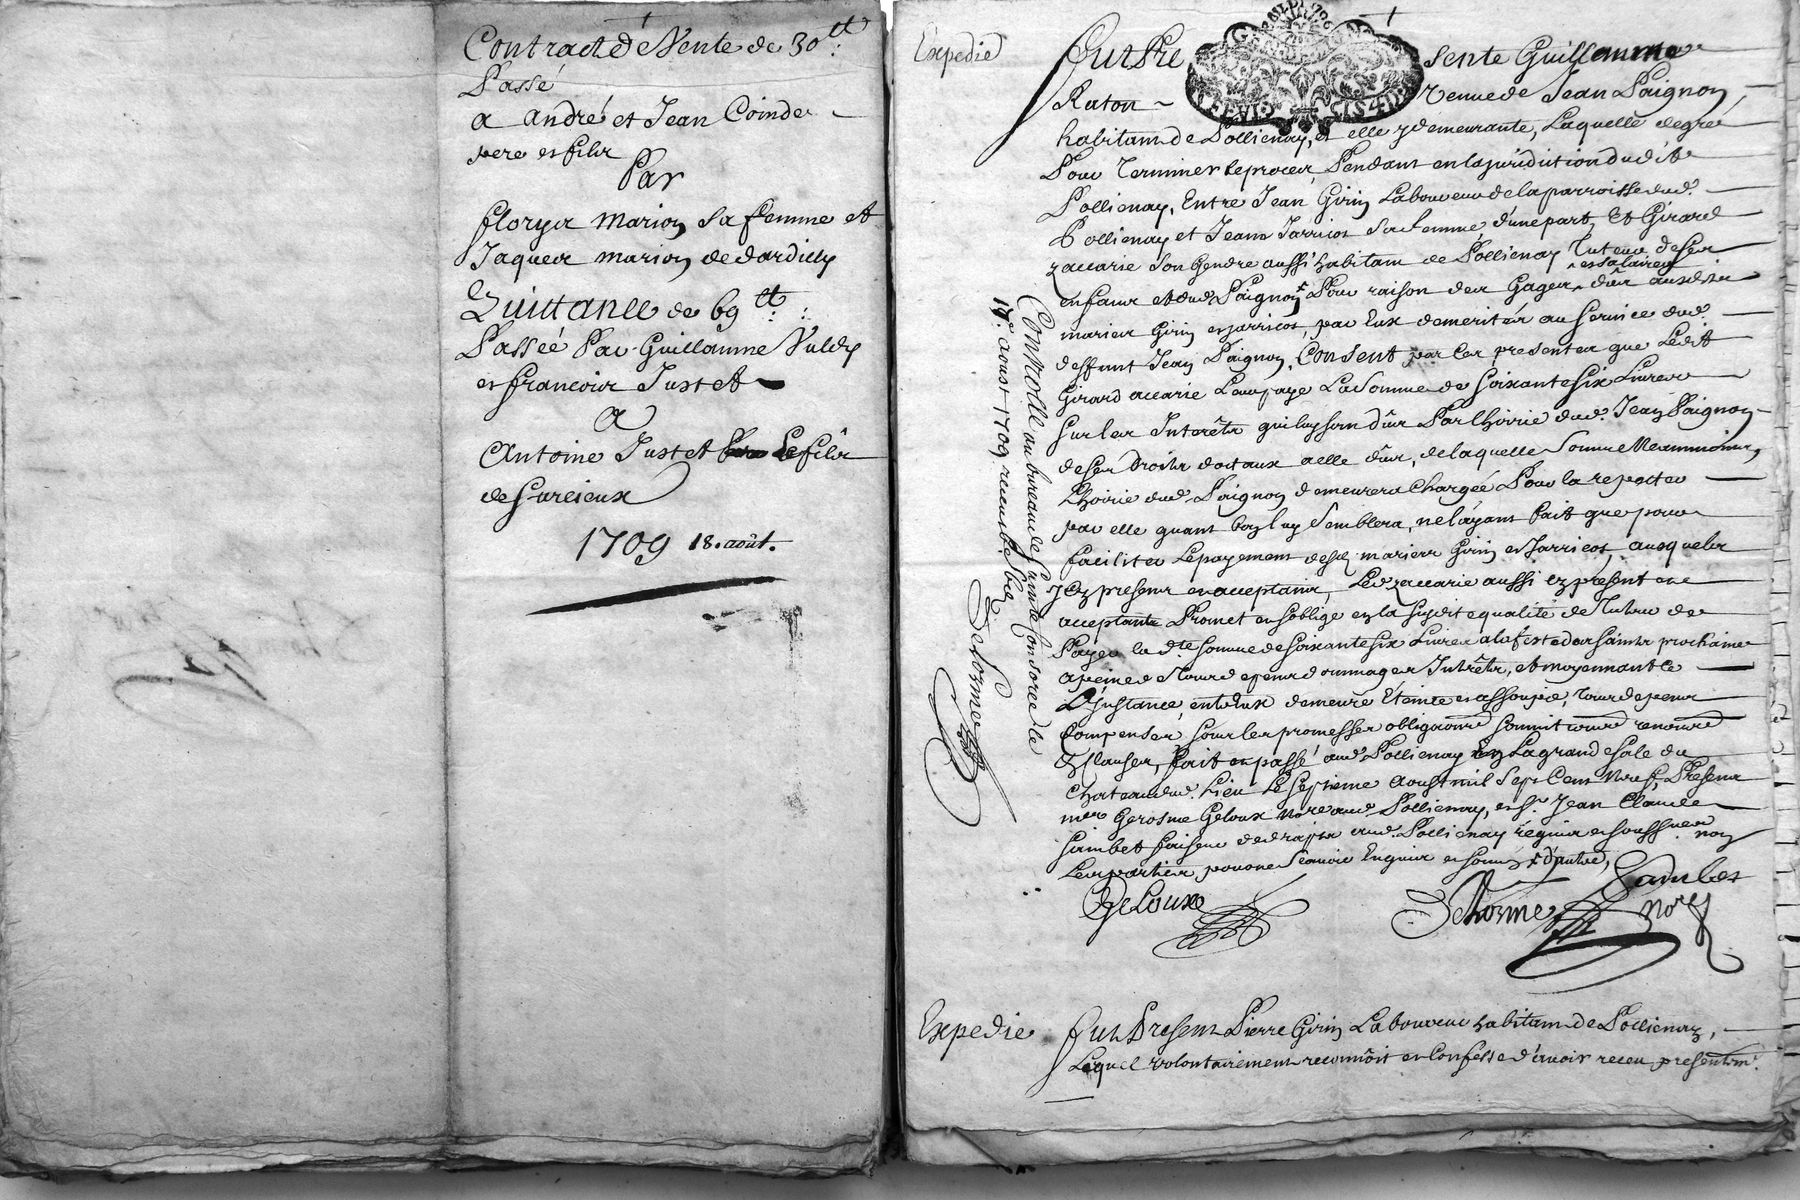 Contract de Vente de 30 tt:
Passé
a andré et Jean Coinde
pere et fils
Par
florys marion sa femme et
Jaques marion de dardilly
Quittance de 69 tt:
Passée Par Guillaume Valdy
et francois Justet
A
Antoine Justet Le fils
de Sarcieux
1709 18. août.
Expedié
fut Pre sente Guillaume
Raton ~ venue de Jean Paignon,
habitant de Pollienay, et elle y demeurante, Laquelle de gré
Pour terminer le procez Pendant en la juridiction dudit
Pollienay, Entre Jean Girin Laboureur de la parroisse dud.
Pollienay et Jeanne Jarricot sa femme d'une part, Et Girard
zaccarie son Gendre aussi habitant de Pollienay Tuteur de ses
enfans et dud. Paignon Pour raison des Gages et salaires dûs ausdits
mariez Girin et Jarricot, par Eux demerités au service dud.
deffunt Jean Paignon, Consent par ces presentes que Ledit
Girard accarie Leur paye La somme de soixante six Livres
sur les Interêts qui luy sont dûs Par Lhoirie dud. Jean Paignon
de ses droits dotaux a elle dûs, de laquelle somme Neammoins,
Lhoirie dud. Paignon demeurera Chargée Pour la repeter
par elle quant bon luy semblera, ne layant fait que pour
faciliter Le payement desd. mariez Girin et Jarricot, ausquels
Icy presens et acceptans, Led. zaccarie aussi Icy présent et
acceptant Promet et s'oblige en la susdite qualité de Tuteur de
Payer la dte somme de soixante six Livres a la feste de la saints prochaine
a peine de tous depens dommages Interêts, et moyennant ce
L'Instance entre Eux demeure Eteinte et assoupie, tous depens
Compensés sous les promesses obligaons soumissions renonce
et Clauses, fait et passé aud. Pollienay En La grande sale du
Chateau dud. Lieu Le septieme Aoust mil Sept Cent Neuf, Presens
mre Gerosme Geloux Nore aud. Pollienay, et Sr. Jean Claude
Jambet faiseur de draps aud. Pollienay requis et soussignes non
Les parties pour ne scavoir Enquis et sommés d'autre,
Geloux
Delhorme nore
Jambet
Controllé au bureau de Sainte Consorce le
17e. aoust 1709. receu
Delorme
Expedié
fut Present Pierre Girin Laboureur habitant de Pollienay,
Lequel volontairement reconnoit et Confesse d'avoir receu presentemt.